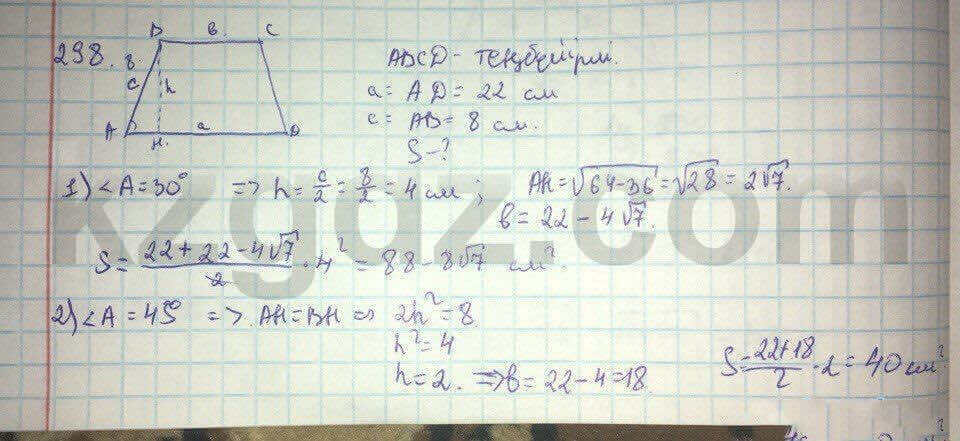 298.
B в. C
8
c h
A H. a D
ABCD - теңбүйірлі.
a = AD = 22 см
c = AB = 8 см.
S - ?
1) ∠A = 30° => h = c/2 = 8/2 = 4 см ; AH = √64-36 = √28 = 2√7.
в = 22 - 4√7.
S = (22 + 22 - 4√7)/2 · 4² = 88 - 8√7 см².
2) ∠A = 45° => AH = BH => 2h² = 8
h² = 4
h = 2. => в = 22 - 4 = 18.
S = (22+18)/2 · 2 = 40 см²
kzgdz.com